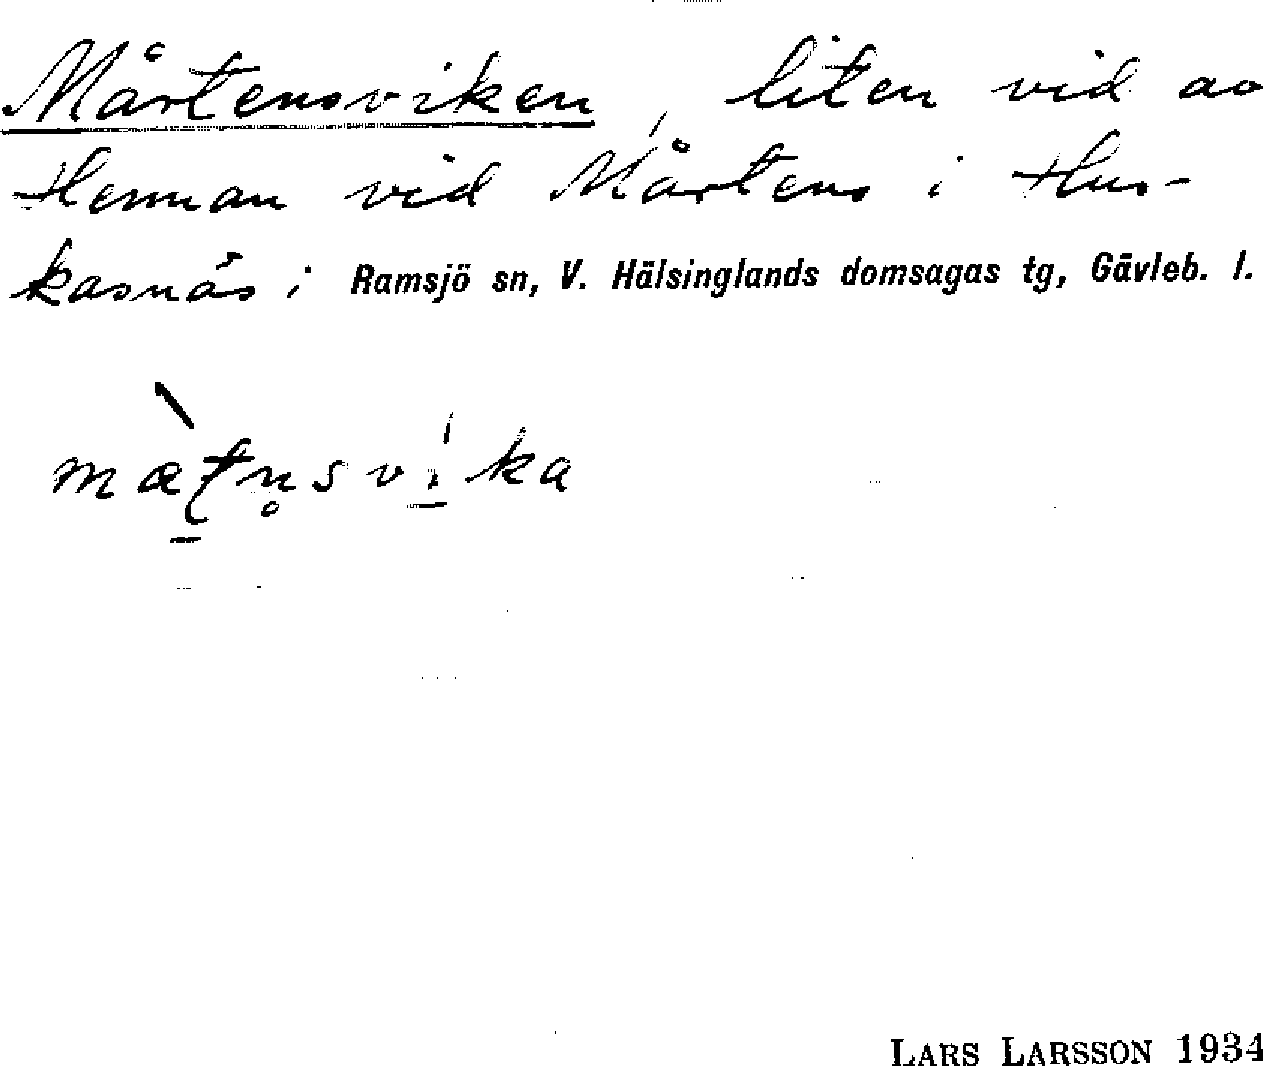 Mårtensviken, liten vid av
Hennan vid Mårtens i Hus-
kasnäs i Ramsjö sn, V. Hälsinglands domsagas tg, Gävleb. l.
mæʈn̥svika
LARS LARSSON 1934